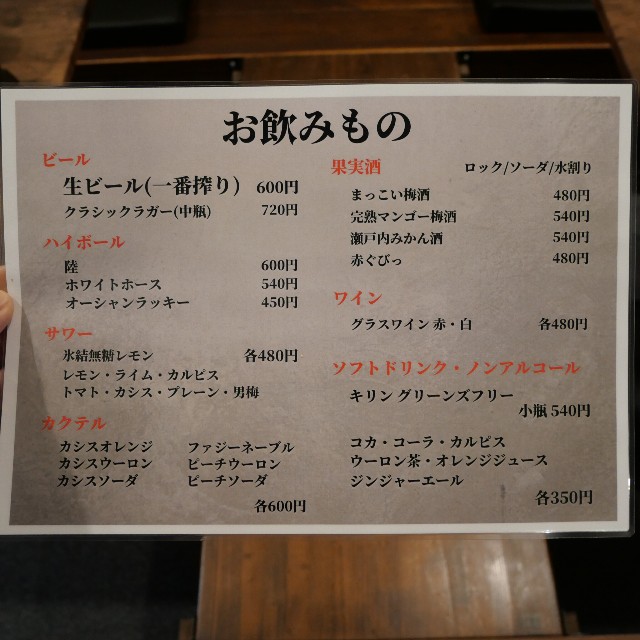 お飲みもの
ビール
生ビール(一番搾り) 600円
クラシックラガー(中瓶) 720円
ハイボール
陸 600円
ホワイトホース 540円
オーシャンラッキー 450円
サワー
氷結無糖レモン 各480円
レモン・ライム・カルピス
トマト・カシス・プレーン・男梅
カクテル
カシスオレンジ ファジーネーブル
カシスウーロン ピーチウーロン
カシスソーダ ピーチソーダ
各600円
果実酒 ロック/ソーダ/水割り
まっこい梅酒 480円
完熟マンゴー梅酒 540円
瀬戸内みかん酒 540円
赤ぐびっ 480円
ワイン
グラスワイン 赤・白 各480円
ソフトドリンク・ノンアルコール
キリン グリーンズフリー
小瓶 540円
コカ・コーラ・カルピス
ウーロン茶・オレンジジュース
ジンジャーエール
各350円